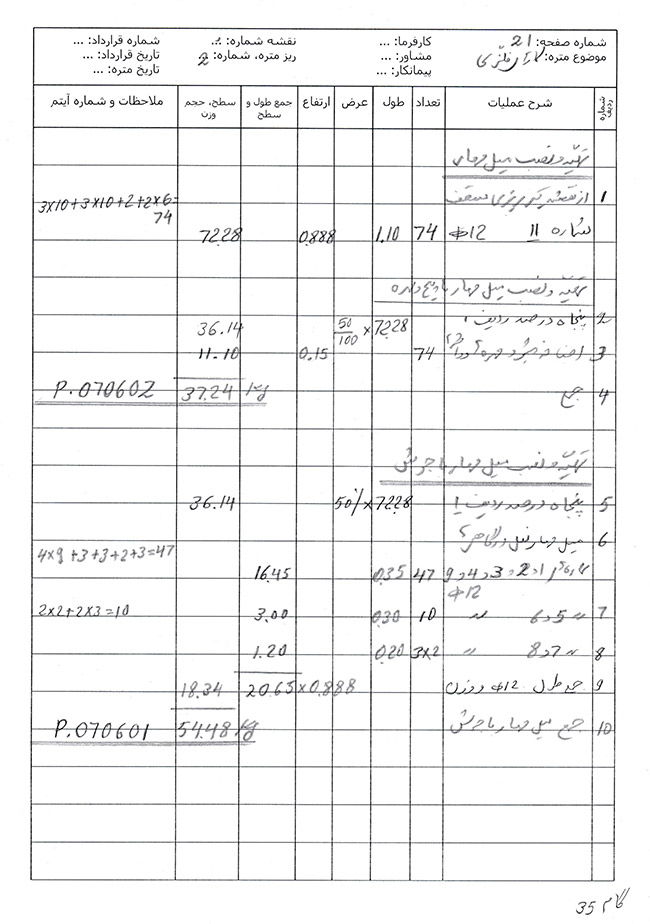 شماره صفحه: 21 کارفرما: ... نقشه شماره: 2 شماره قرارداد: ...
موضوع متره: کارهای فلزی مشاور: ... ریز متره، شماره: 2 تاریخ قرارداد: ...
پیمانکار: ... تاریخ متره: ...
شماره ردیف شرح عملیات تعداد طول عرض ارتفاع جمع طول و سطح سطح، حجم وزن ملاحظات و شماره آیتم
تهیه و نصب میل مهار
1 از نقشه تیر ریزی سقف 3x10+3x10+2+2x6=
74
شماره 11 Φ12 74 1.10 0.888 72.28
تهیه و نصب میل مهار با پیچ و مهره
2 پنجاه درصد ردیف 1 72.28 x 50/100 36.14
3 اضافه پیچ و مهره 74 0.15 11.10
4 جمع 37.24 Kg P.070602
تهیه و نصب میل مهار با جوش
5 پنجاه درصد ردیف 1 72.28 x 50% 36.14
6 میل مهار
1 و 2 و 3 و 4 و 9 47 0.35 16.45 4x9+3+3+2+3=47
Φ12
7 〃 5 و 6 〃 10 0.30 3.00 2x2+2x3=10
8 〃 7 و 8 〃 3x2 0.20 1.20
9 جمع طول Φ12 و وزن 0.888 x 20.65 18.34
10 جمع میل مهار با جوش 54.48 Kg P.070601
گام 35